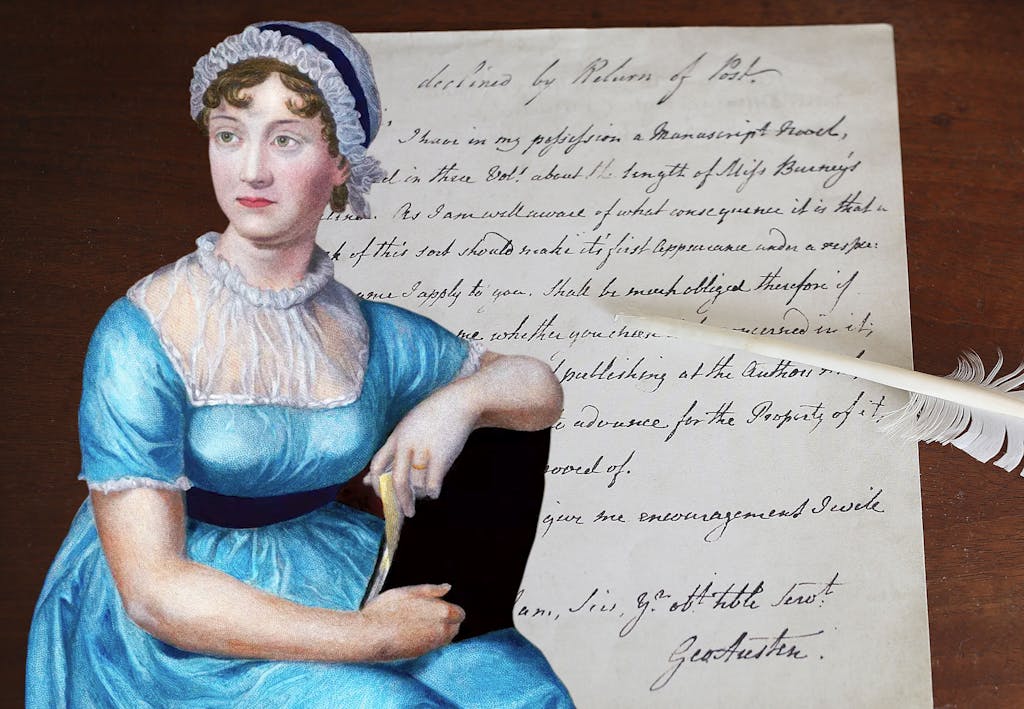 declined by Return of Post.
I have in my possession a Manuscript Novel,
d in three Vols. about the length of Miss Burney's
lina. As I am well aware of what consequence it is that a
k of this sort should make it's first Appearance under a respec:
ame I apply to you. Shall be much obliged therefore if
me whether you choose concerned in it;
publishing at the Author's
advance for the Property of it,
oved of.
give me encouragement I will
am, Sir, Yr. obt. hble Servt.
Geo Austen.